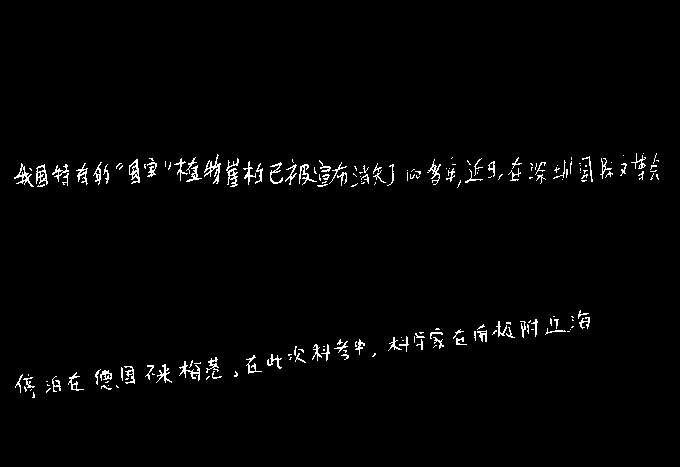 我国特有的“国宝”植物崖柏已被宣布消失了100多年,近日,在深圳国际文博会
停泊在德国不来梅港。在此次科考中,科学家在南极附近海